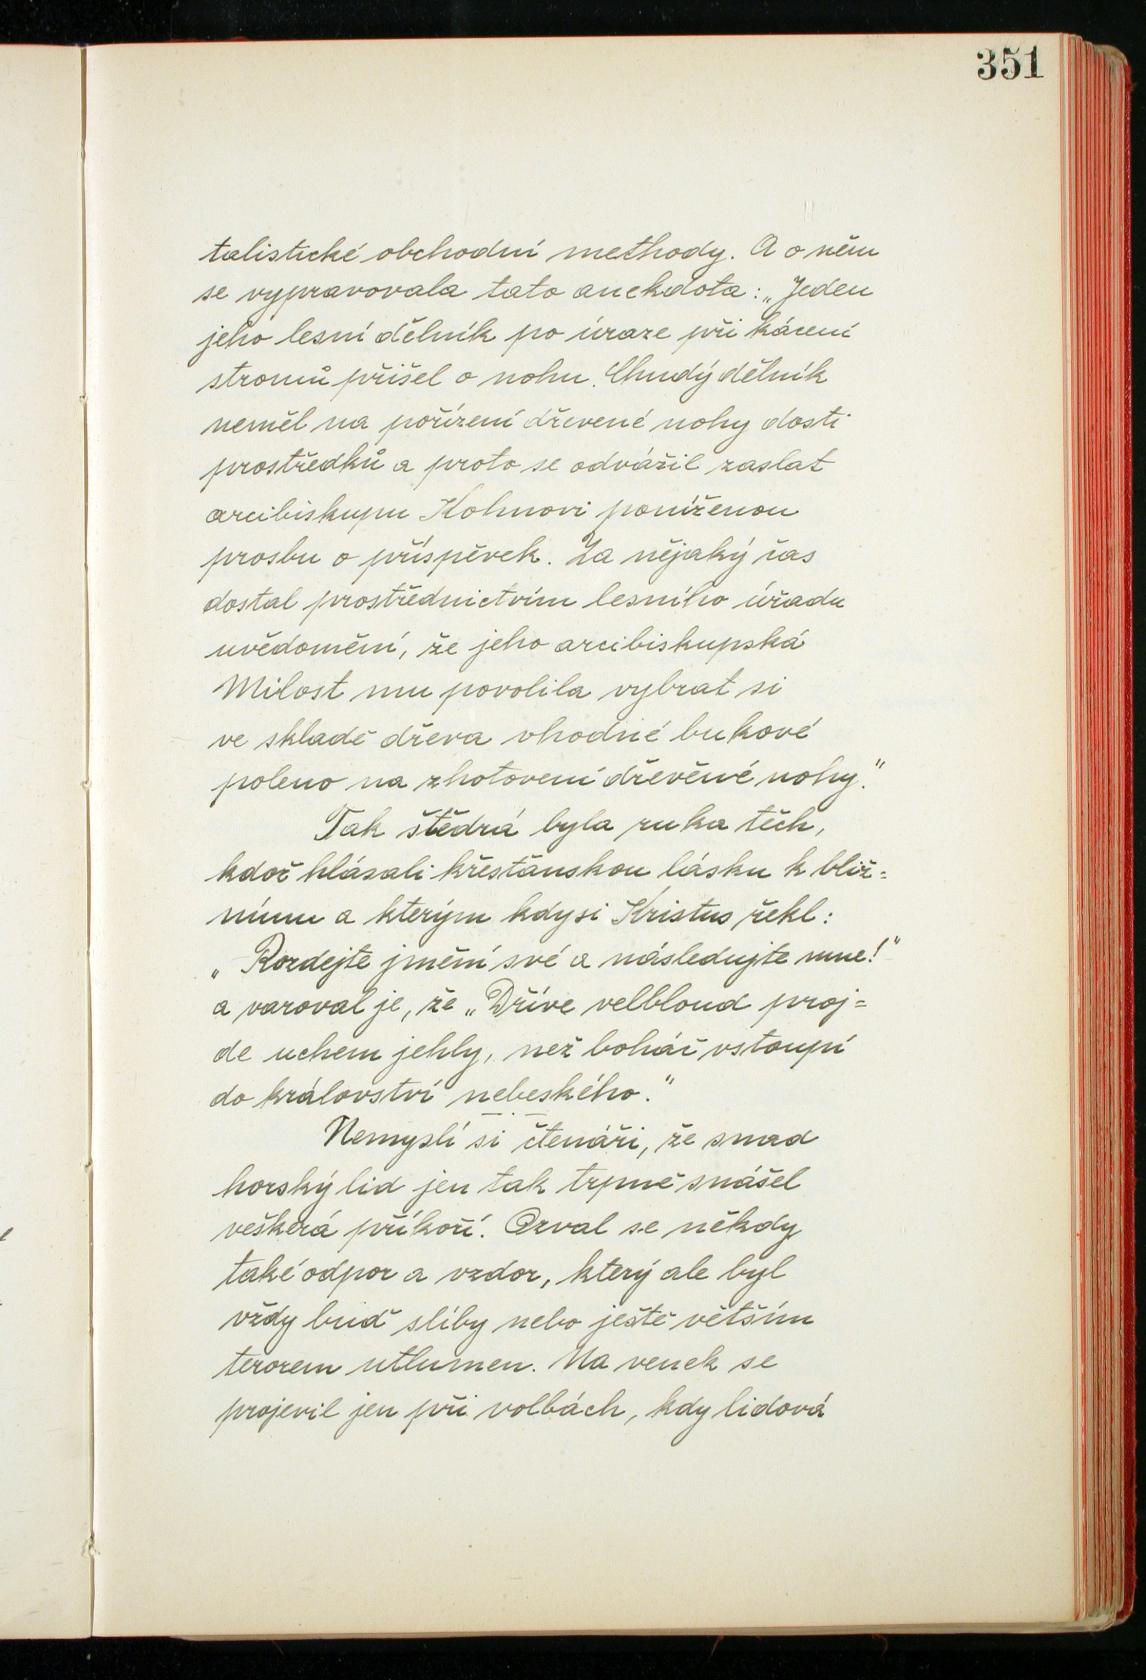 351
talistické obchodní methody. A o něm
se vypravovala tato anekdota: „Jeden
jeho lesní dělník po úraze při kácení
stromů přišel o nohu. Chudý dělník
neměl na pořízení dřevené nohy dosti
prostředků a proto se odvážil zaslat
arcibiskupu Kohnovi poníženou
prosbu o příspěvek. Za nějaký čas
dostal prostřednictvím lesního úřadu
uvědomění, že jeho arcibiskupská
Milost mu povolila vybrat si
ve skladě dřeva vhodné bukové
poleno na zhotovení dřevěné nohy."
Tak štědrá byla ruka těch,
kdož hlásali křesťanskou lásku k bliž=
nímu a kterým kdysi Kristus řekl:
„Rozdejte jmění své a následujte mne!"
a varoval je, že „Dříve velbloud proj=
de uchem jehly, než boháč vstoupí
do království nebeského."
Nemyslí si čtenáři, že snad
horský lid jen tak trpně snášel
veškerá příkoří. Ozval se někdy
také odpor a vzdor, který ale byl
vždy buď sliby nebo ještě větším
terorem utlumen. Na venek se
projevil jen při volbách, kdy lidová